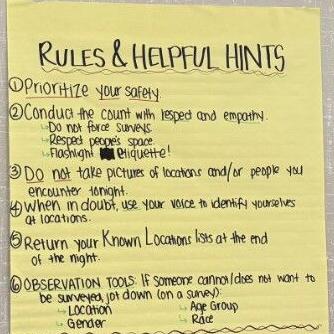 RULES & HELPFUL HINTS
① Prioritize your safety.
② Conduct the count with respect and empathy.
↳ Do not force surveys
↳ Respect people's space
↳ Flashlight etiquette!
③ Do not take pictures of locations and/or people you
encounter tonight.
④ When in doubt, use your voice to identify yourselves
at locations.
⑤ Return your Known Locations lists at the end
of the night.
⑥ OBSERVATION TOOLS: If someone cannot/does not want to
be surveyed, jot down (on a survey):
↳ Location ↳ Age Group
↳ Gender ↳ Race